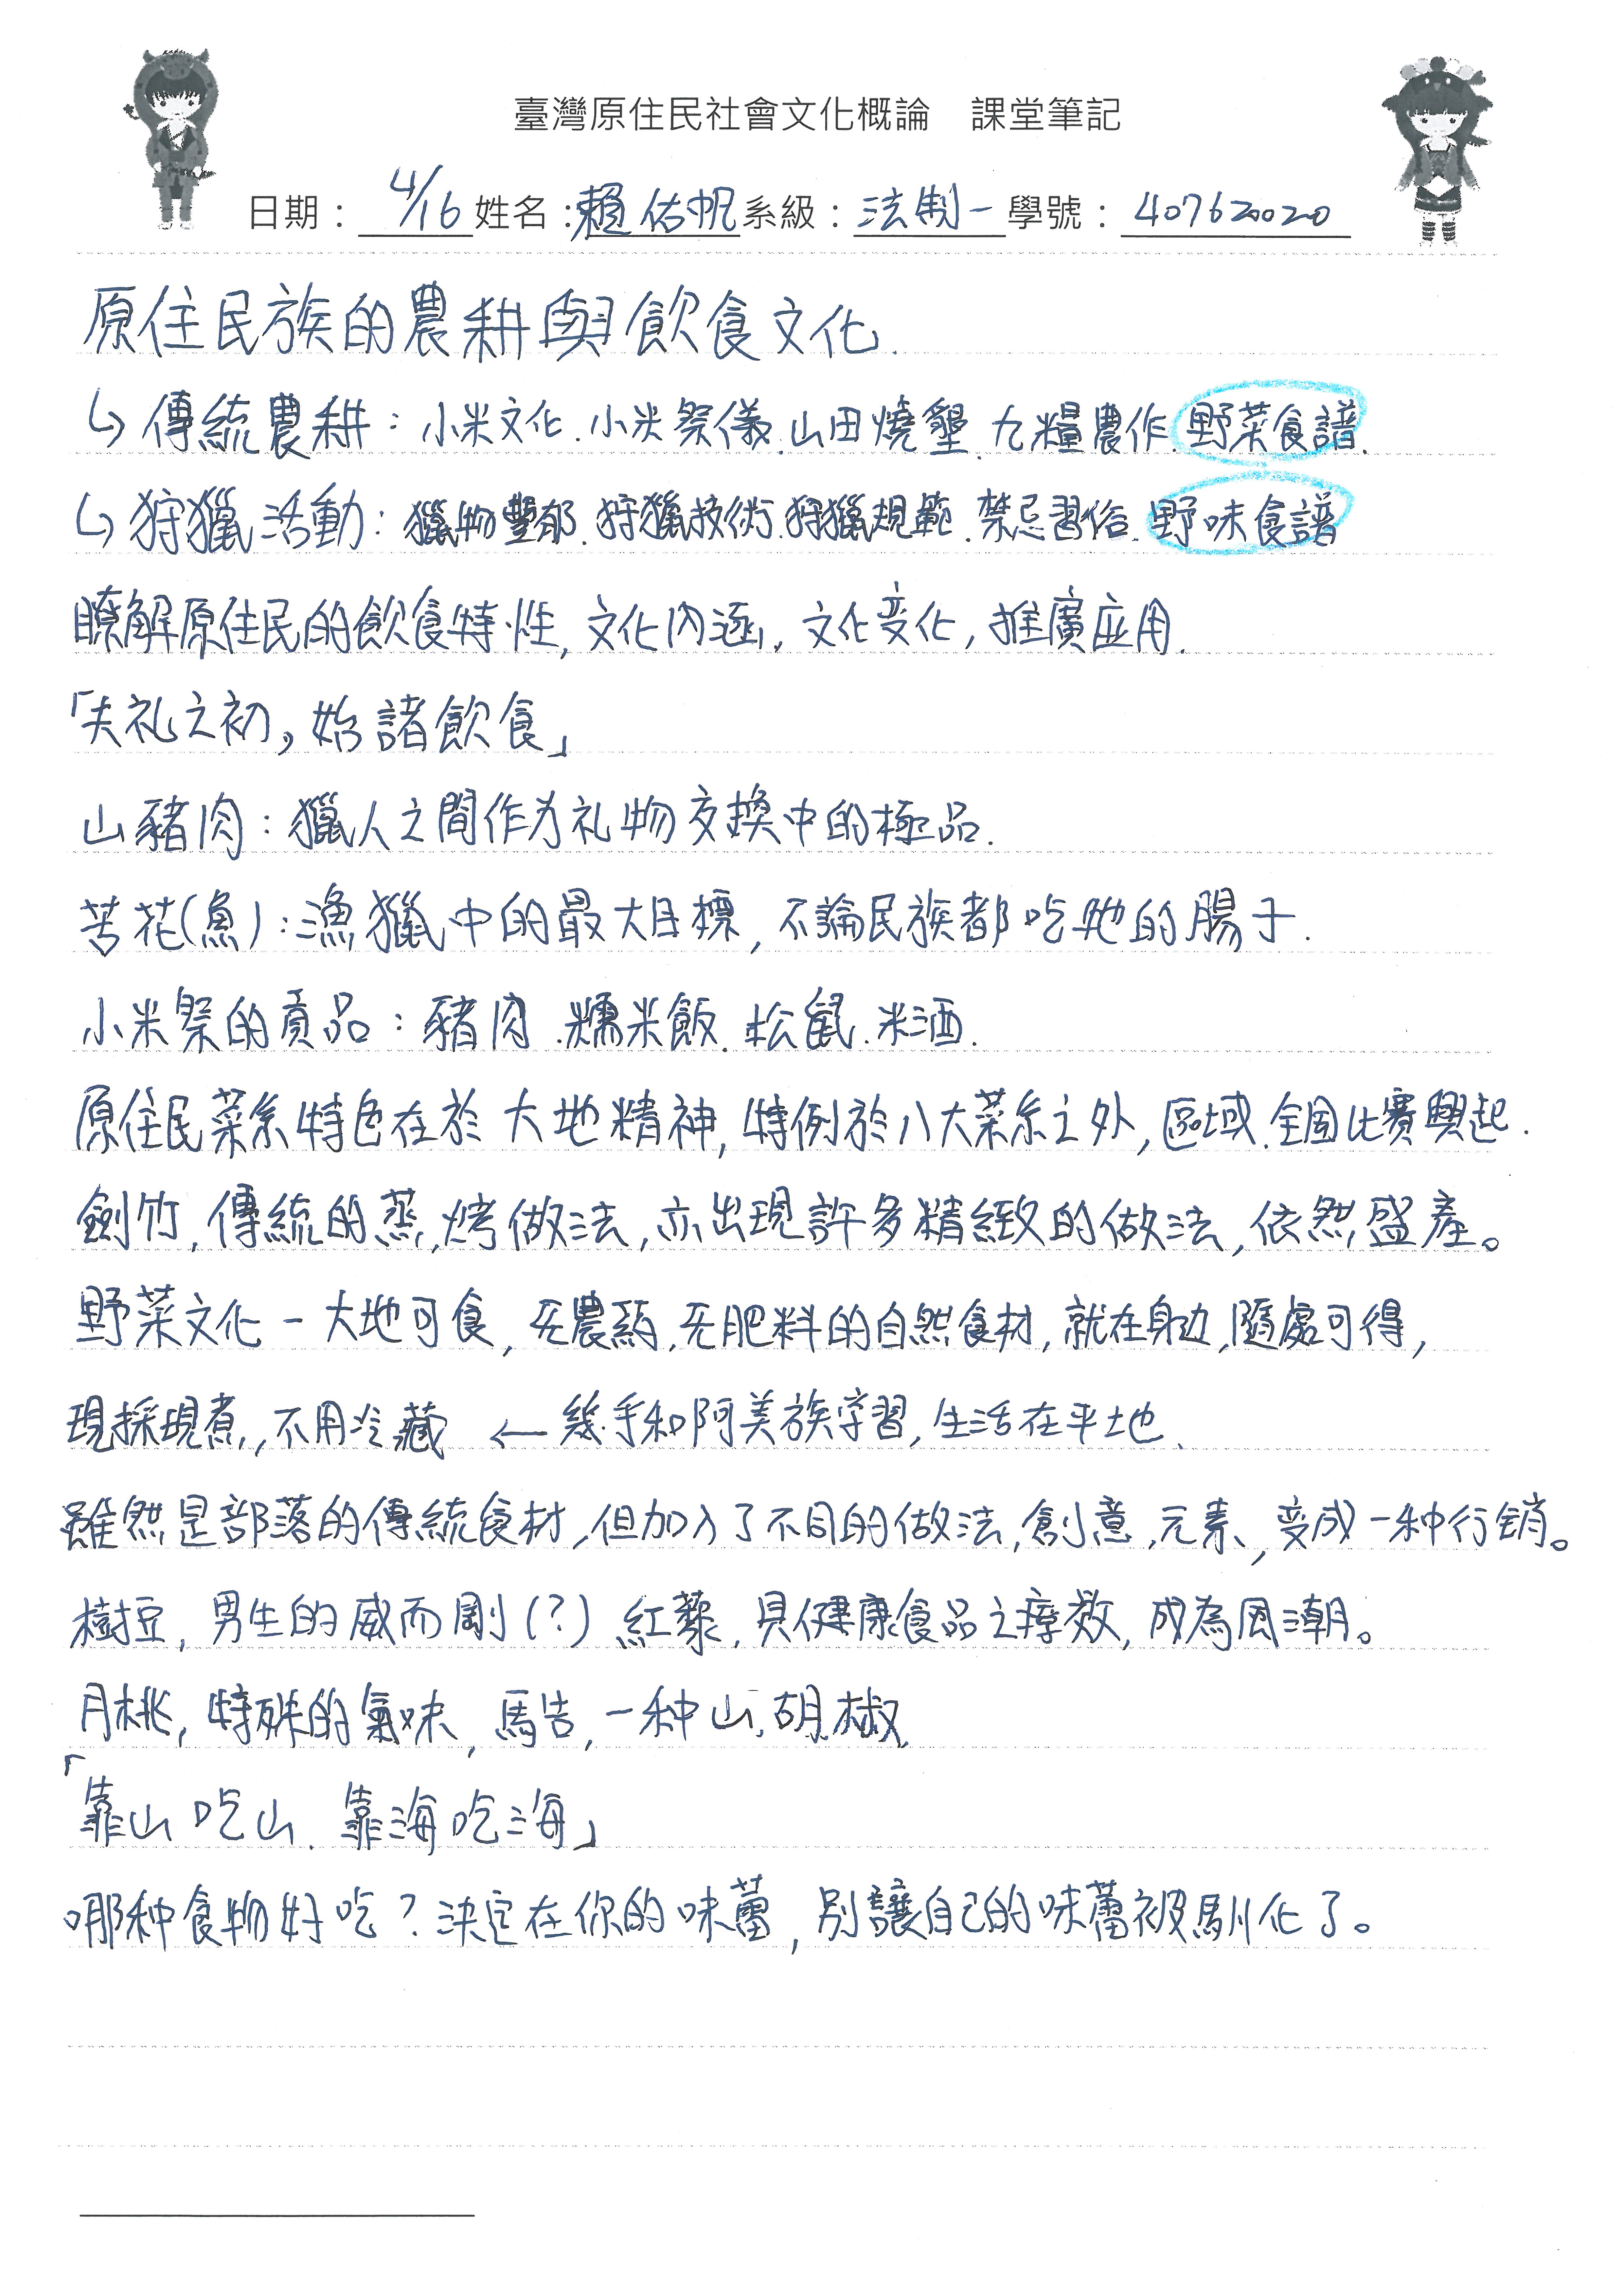 臺灣原住民社會文化概論　課堂筆記
日期：4/16 姓名：賴佑帆 系級：法制一 學號：407620020
原住民族的農耕與飲食文化.
↳ 傳統農耕：小米文化.小米祭儀.山田燒墾.九糧農作.野菜食譜.
↳ 狩獵活動：獵物豐郁.狩獵技術.狩獵規範.禁忌習俗.野味食譜
瞭解原住民的飲食特性,文化內涵,文化变化,推廣应用.
「夫礼之初,始諸飲食」
山豬肉：獵人之間作为礼物交換中的極品.
苦花(魚)：漁獵中的最大目標,不論民族都吃牠的腸子.
小米祭的貢品：豬肉.糯米飯.松鼠.米酒.
原住民菜系特色在於大地精神,特例於八大菜系之外,區域.全國比賽興起.
劍竹,傳統的蒸,烤做法,亦出現許多精緻的做法,依然盛產。
野菜文化－大地可食,无農葯,无肥料的自然食材,就在身边,隨處可得,
現採現煮,不用冷藏 ← 幾乎和阿美族学習,生活在平地.
雖然是部落的傳統食材,但加入了不同的做法,創意,元素,变成一种行銷。
樹豆,男生的威而剛(?) 紅藜,具健康食品之療效,成為風潮。
月桃,特殊的氣味,馬告,一种山胡椒.
「靠山吃山.靠海吃海」
哪种食物好吃？決定在你的味蕾,別讓自己的味蕾被馴化了。